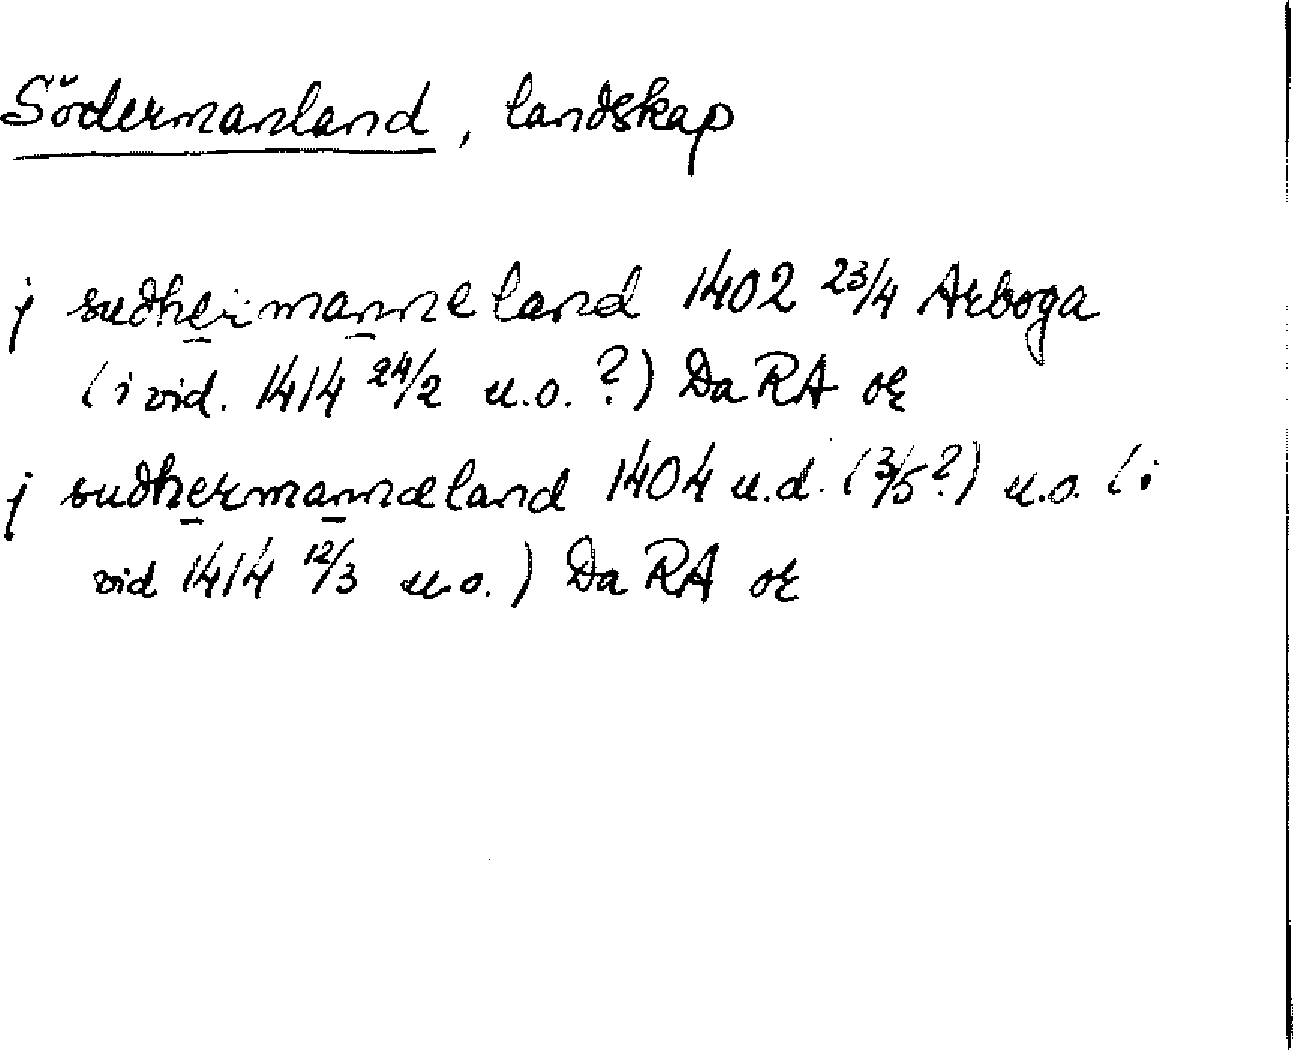 Södermanland, landskap
j sudhermanneland 1402 23/4 Arboga
(i vid. 1414 24/2 u.o.?) Da RA or
j sudhermannæland 1404 u.d. (3/5?) u.o. (i
vid 1414 12/3 u.o.) Da RA or